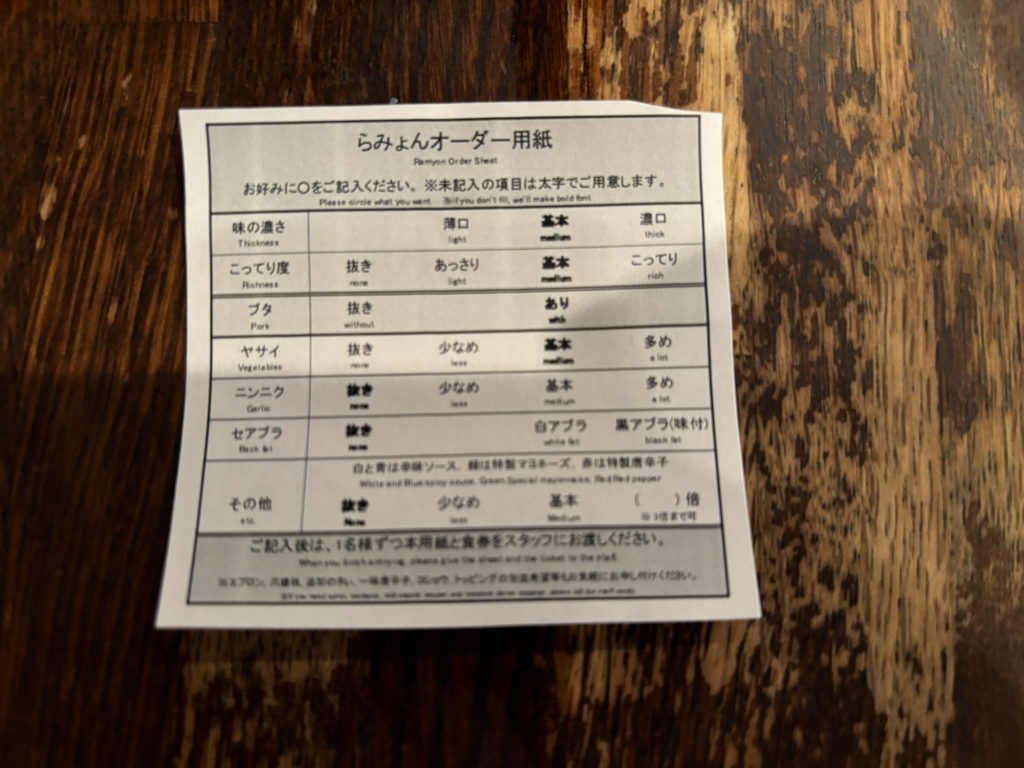 らみょんオーダー用紙
Ramyon Order Sheet
お好みに〇をご記入ください。※未記入の項目は太字でご用意します。
Please circle what you want ※if you don't fill, we'll make bold font
味の濃さ 薄口 基本 濃口
Thickness light medium thick
こってり度 抜き あっさり 基本 こってり
Richness none light medium rich
ブタ 抜き あり
Pork without with
ヤサイ 抜き 少なめ 基本 多め
Vegetables none less medium a lot
ニンニク 抜き 少なめ 基本 多め
Garlic none less medium a lot
セアブラ 抜き 白アブラ 黒アブラ(味付)
Back fat none white fat black fat
白と青は辛味ソース、緑は特製マヨネーズ、赤は特製唐辛子
White and Blue:spicy sauce, Green:Special mayonnaise, Red:Red pepper
その他 抜き 少なめ 基本 ( )倍
etc. None less Medium ※3倍まで可
ご記入後は、1名様ずつ本用紙と食券をスタッフにお渡しください。
When you finish entrying, please give the sheet and the ticket to the staff.
※エプロン、爪楊枝、追加の匂い、一味唐辛子、コショウ、トッピングの別皿希望等もお気軽にお申し付けください。